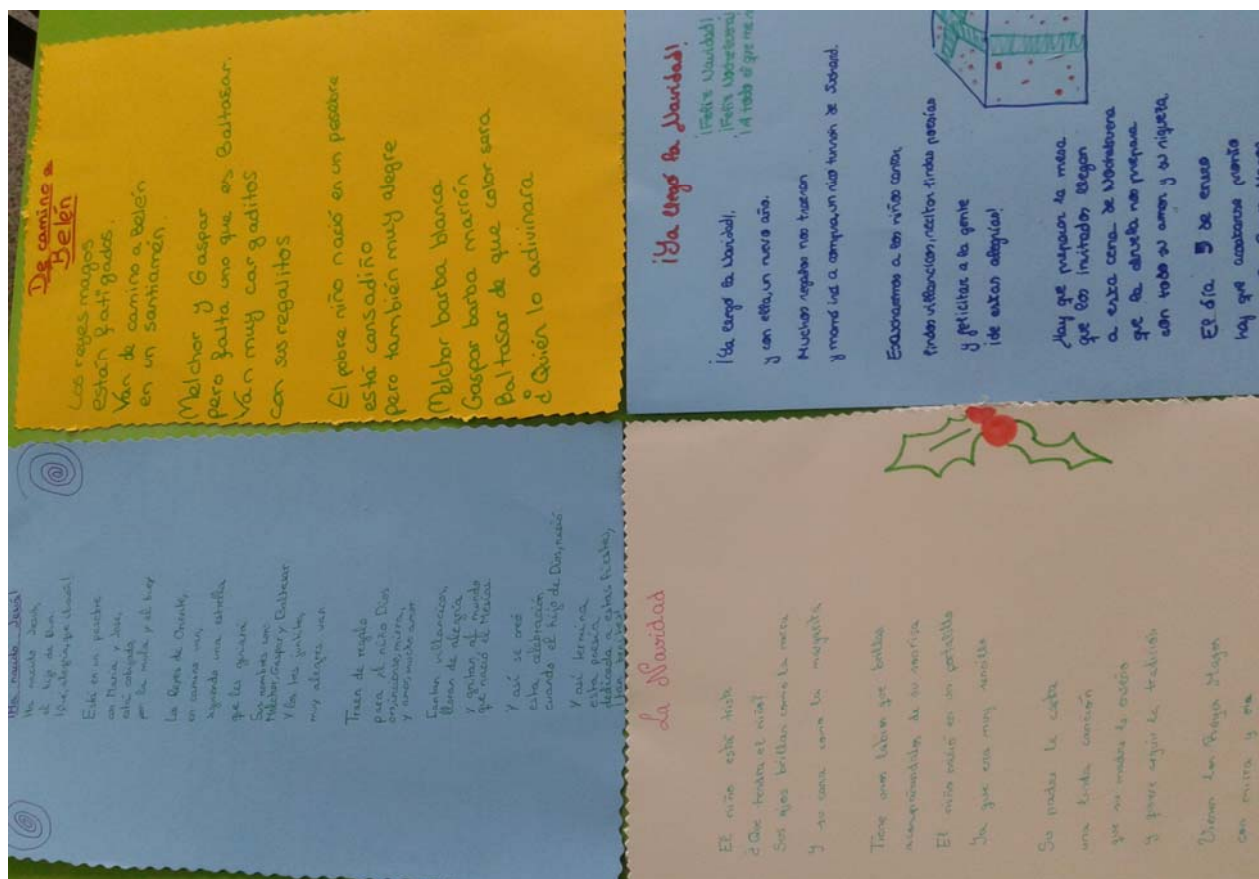 ¡Ha nacido Jesús!
Ha nacido Jesús,
el hijo de Dios
¡Qué alegría, que ilusión!
Está en un pesebre
con María y José,
está cobijado
por la mula y el buey
Los Reyes de Oriente,
en camino van,
siguiendo una estrella
que les guiará
Sus nombres son
Melchor, Gaspar y Baltasar
Y los tres juntitos,
muy alegres van
Traen de regalo
para el niño Dios
oro, incienso, mirra,
y amor, mucho amor
Cantan villancicos,
lloran de alegría
y gritan al mundo
que nació el Mesías
Y así se creó
esta celebración
cuando el hijo de Dios, nació
Y así termina
esta poesía
dedicada a estas fiestas,
De camino a
Belén
Los reyes magos
están fatigados.
Van de camino a Belén
en un santiamén.
Melchor y Gaspar
pero falta uno que es Baltasar.
Van muy cargaditos
con sus regalitos
El pobre niño nació en un pesebre
está cansadiño
pero también muy alegre
Melchor barba blanca
Gaspar barba marrón
Baltasar de que color sara
¿Quién lo adivinara
La Navidad
El niño está triste
¿Que tendra el niño?
Sus ojos brillan como la nieve
y su cara como la
Tiene unos labios que brillan
acompañandolos de su sonrisa
El niño nació en un portalillo
Ya que era muy sencillo
Su padre le canta
una linda canción
que su madre le enseño
y parece seguir la tradición
Vienen Los Reyes Magos
con mirra y oro
¡Ya llegó la Navidad!
¡Feliz Navidad!
¡Feliz Nochebuena!
¡A todo el que me
¡Ya llegó la Navidad!,
y con ella, un nuevo año.
Muchos regalos nos traeran
y mamá irá a comprar, un rico turrón de Suchard.
Escucharemos a los niños cantar
lindos villancicos, recitar lindas poesías
y felicitar a la gente
¡de estas alegrías!
Hay que preparar la mesa
que los invitados llegan
a esta cena de Nochebuena
que la abuela nos prepara
con todo su amor y su riqueza
El día 5 de enero
hay que acostarse pronto